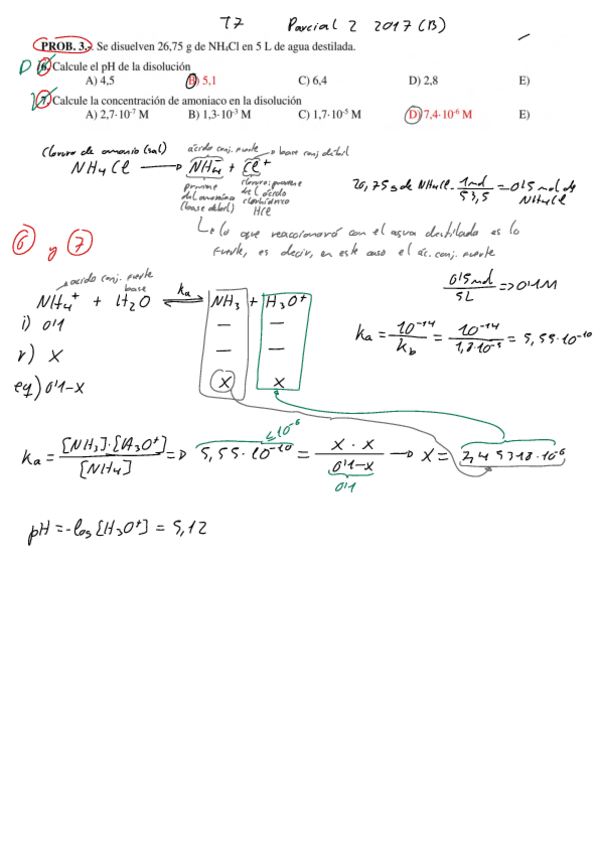 T7 Parcial 2 2017 (B)
PROB. 3.- Se disuelven 26,75 g de NH4Cl en 5 L de agua destilada.
6. Calcule el pH de la disolución
A) 4,5 B) 5,1 C) 6,4 D) 2,8 E)
7. Calcule la concentración de amoniaco en la disolución
A) 2,7·10⁻⁷ M B) 1,3·10⁻³ M C) 1,7·10⁻⁵ M D) 7,4·10⁻⁶ M E)
Cloruro de amonio (sal) ácido conj. fuerte base conj débil
NH4Cl → NH4⁺ + Cl⁻
proviene del amoniaco (base débil)
cloruro: proviene del ácido clorhídrico HCl
26,75 g de NH4Cl · 1mol / 53,5 = 0'5 mol de NH4Cl
Lo que reaccionará con el agua destilada es lo
fuerte, es decir, en este caso el ác. conj. fuerte
6 y 7
ácido conj. fuerte base
NH4⁺ + H2O ⇌ ka NH3 + H3O⁺
0'5 mol / 5L => 0'1M
i) 0'1 — —
r) x — —
eq) 0'1-x x x
ka = 10⁻¹⁴ / kb = 10⁻¹⁴ / 1,8·10⁻⁵ = 5,55·10⁻¹⁰
≤10⁻⁶
ka = [NH3]·[H3O⁺] / [NH4] => 5,55·10⁻¹⁰ = x · x / 0'1-x → x = 7,453718·10⁻⁶
0'1
pH = -log [H3O⁺] = 5,12